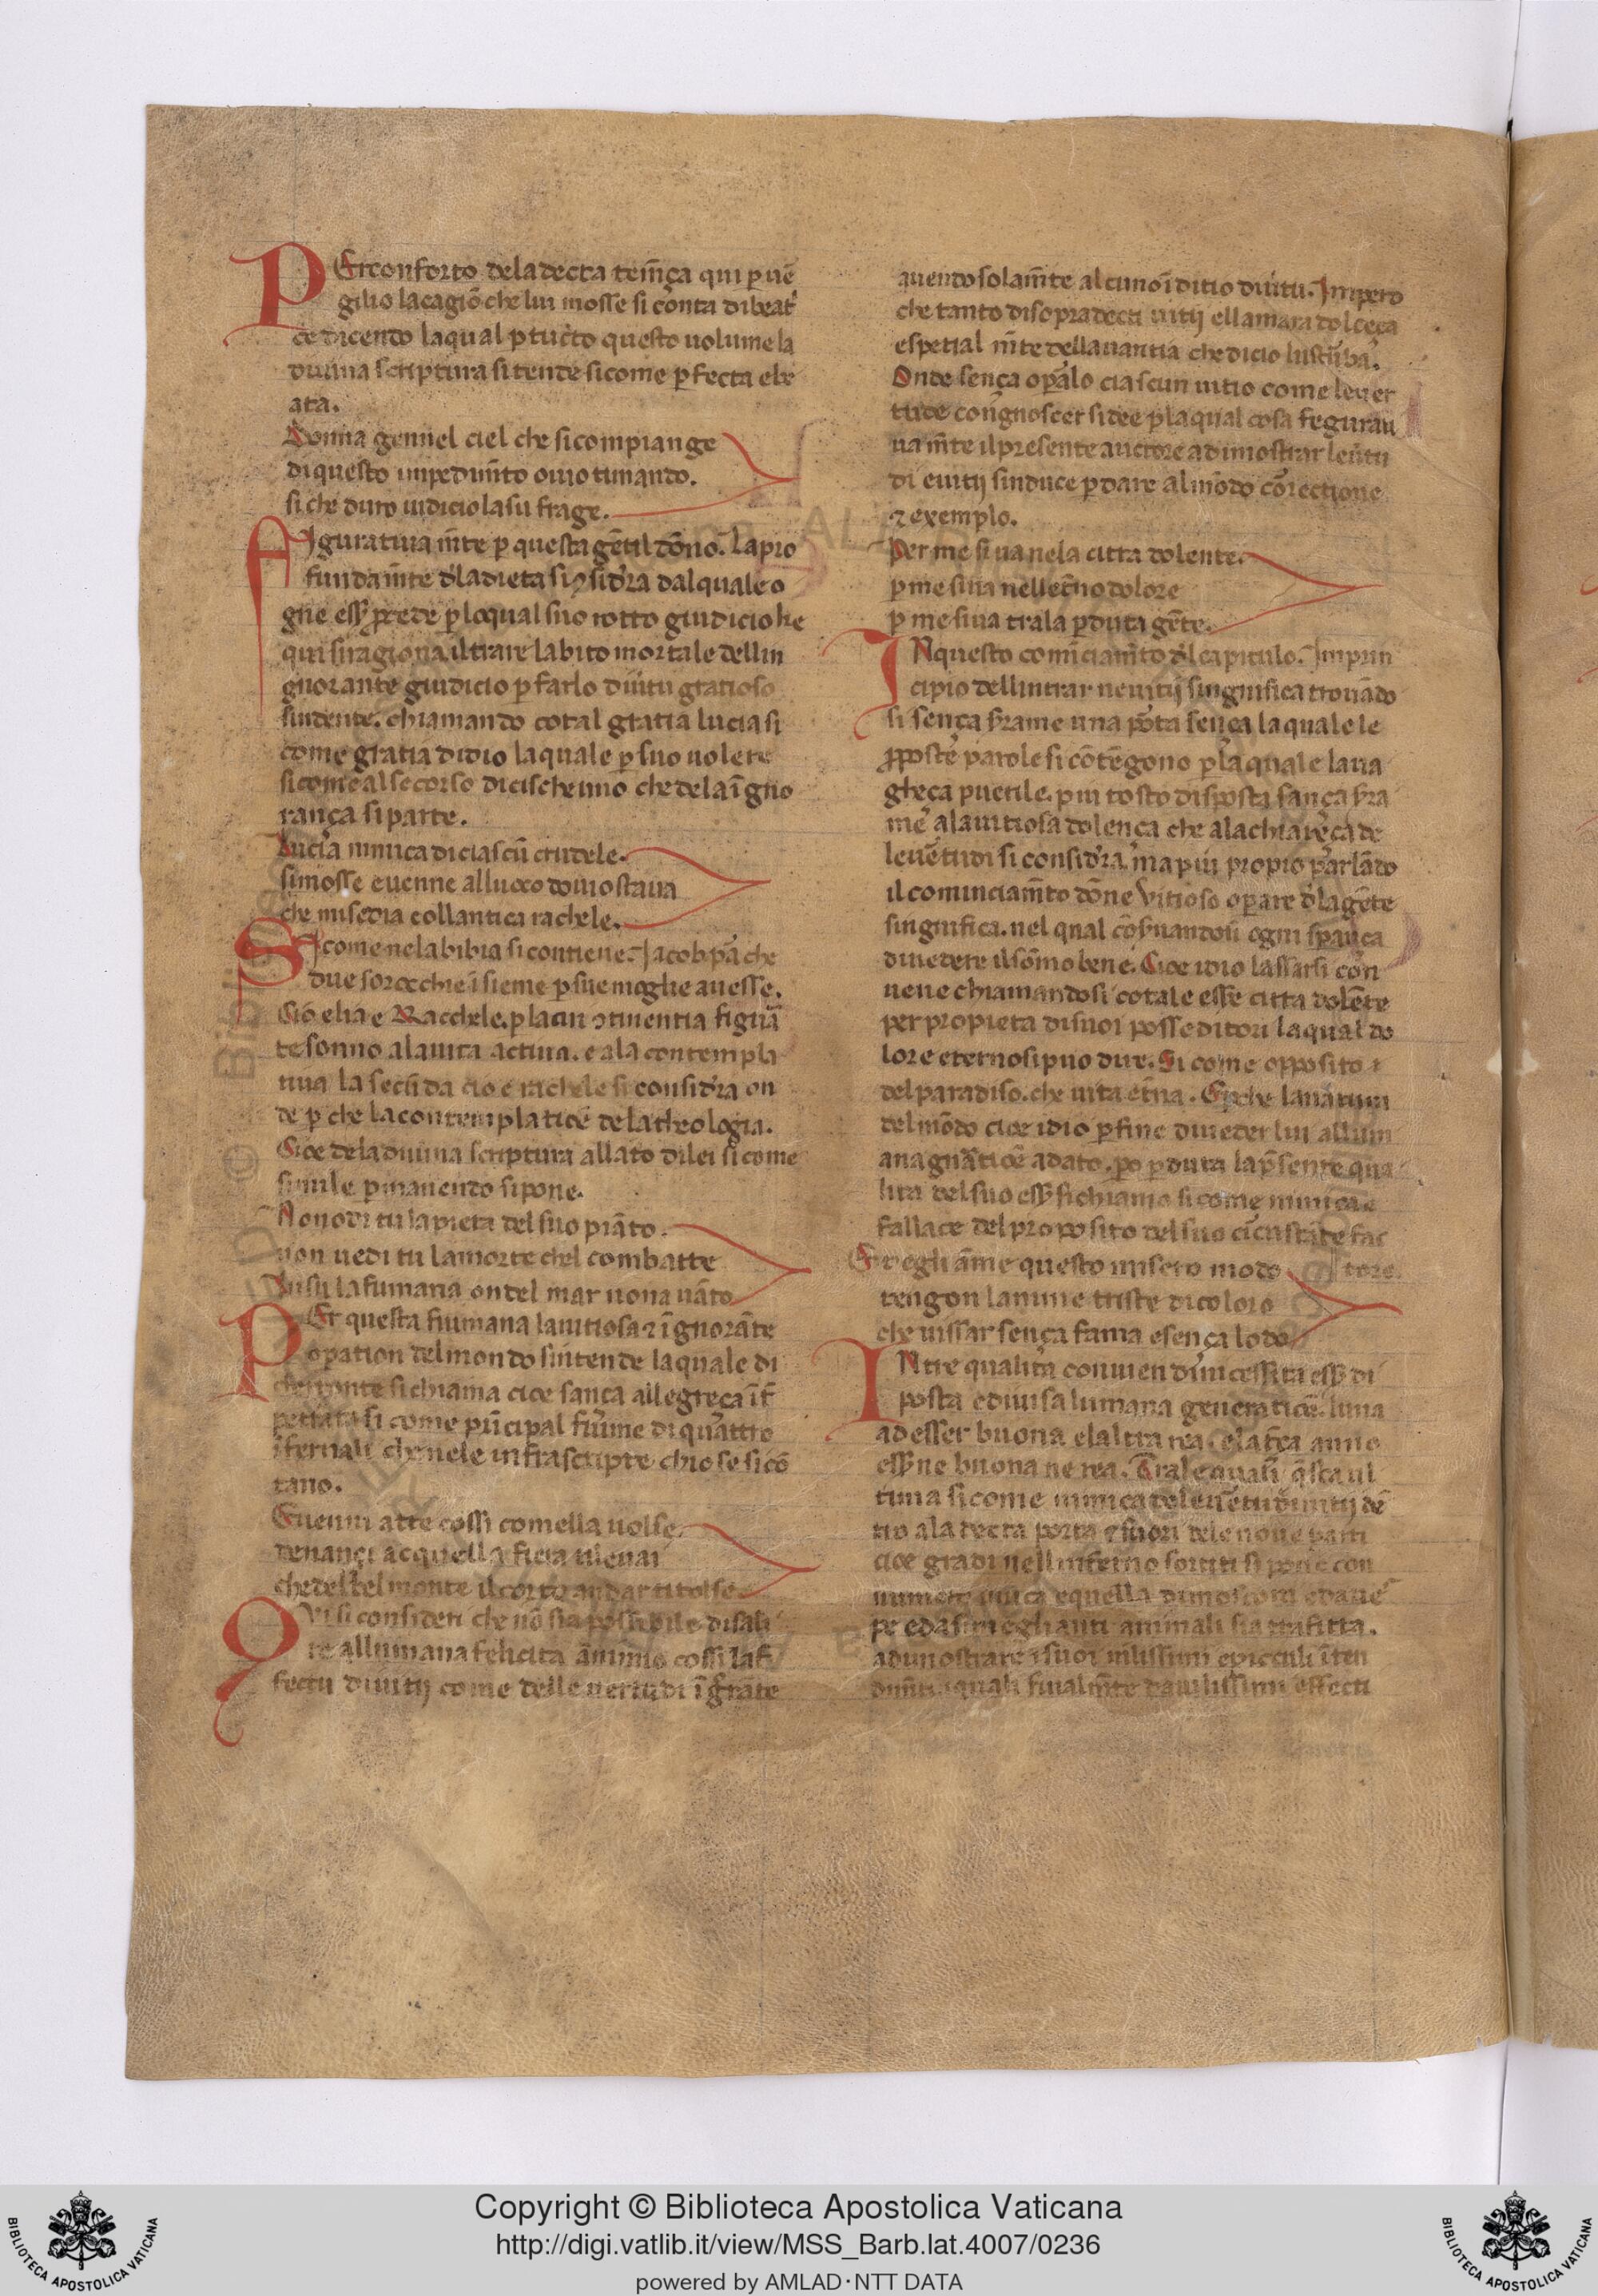 PErconforto dela decta tem̄ça qui p̱ uē
gilio la cagiō che lui mosse si conta di beat
ce dicendo la qual p̱ tucto questo uolume la
diuina scriptura si tende si come p̱fecta e be
ata.
Donna gentil e nel ciel che si compiange
di questo impedim̄to ouio ti mando.
si che duro iudicio la su frage.
FIguratiua m̄te p̱ questa gētil dōno. La pro
funda m̄te d̓la dieta si ɔsid̓ra dal quale o
gne ess̓ p̱cede p̱ lo qual suo rotto giudicio he
qui si ragiona il trare labito mortale dell in
gnorante giudicio p̱ farlo diu̅tu gratioso
sintende. chiamando cotal gratia lucia si
come gratia didio la quale p̱ suo uolere
si come al secorso di cische uno che dela ī gno
rança si parte.
Lucia nimica di ciascū crudele.
si mosse e uenne al luoco douio staua
che mi sedia coll antica rachele.
SI come nela bibia si contiene. Jacob p̱a che
due sorocchie ī sieme p̱ sue moglie auesse.
Cio e lia e Racchele. p̱ la cui ɔtinentia figuā
te sonno ala uita actiua. e ala contempla
tiua la secūda cio e rachele si consid̓ra on
de p̱ che la contemplatiōe dela theologia.
Cioe dela diuina scriptura allato di lei si come
simile p̱manendo si pone.
Non odi tu la pieta del suo piāto.
non uedi tu la morte chel combatte
su la fumana ondel mar non a uāto
PEr questa fiumana la uitiosa ⁊ ī gnorāte
op̱ation del mondo sintende la quale di
cheronte si chiama cioe sança allegreça īt̄
petrata si come pūcipal fiume di quattro
īfernali che nele infrascripte chiose si cō
tano.
E uenni atte cossi comella uolse
denançi acquella fiera ti leuai
che del bel monte il corto andar ti tolse
QVi si consideri che nō sia possibile di sali
re all umana felicita āminio cossi laf
fectu di uitij come delle uertudi ī grāte
auendo solam̄te alcuno ī ditio diuitu. Jmpero
che tanto di sopra decti uitij ell amara dolceça
espetial m̄te dell auantia che dicio lustūba.
Onde sença op̱alo ciascun uitio come le uer
tude congnoscer si dee p̱ la qual cosa feguratī
ua m̄te il presente auctore adimostrar le ūtu
di e uitij sinduce p̱ dare al mōdo cōrectione
⁊ exemplo.
Per me si ua nela citta dolente.
p̱ me si ua nell et̄no dolore
p̱ me si ua tra la p̱duta gēte.
INquesto comīciam̄to d̓l capitulo. Jmprin
cipio dell intrar ne uitij singnifica trouādo
si sença frame una pōta sença la quale le
p̱poste parole si cōtēgono p̱ la quale la ua
gheça puerile. piu tosto disposta sança fra
me ala uitiosa dolença che ala chiareça de
le uētudi si consid̓ra. ma piu propio parlādo
il cominciam̄to dōne Vitioso op̱are d̓la gēte
singnifica. nel qual cōf̄uandosi ogni sp̱ança
di uedere il sōmo bene. Cioe idio lassarsi cōn
uene chiamandosi cotale esse citta dolēte
per propieta di suoi posseditori la qual do
lore eterno si puo dire. Si come opposito
del paradiso. che uita et̄na. E p̱che la uātum
del mōdo cioe idio p̱ fine di ueder lui all um
ana gn̄atiōe a dato. p̱o p̱duta la p̄sente qua
lita del suo ess̓ si chiama si come nimica e
fallace del proposito del suo cīcustāte fac
tore.
Et egli āme questo misero modo
tengon lanime triste di coloro
che uissar sença fama e sença lodo
INtre qualita conuien di necessita ess̓ di
posta e diuisa lumana generatiōe. luna
ad esser buona e laltra rea. e la t̄ça anno
ess̓ ne buona ne rea. Tra le quali q̄sta ul
tima si come nimica dele uētudi uitij dē
tro ala decta porta e fuori dele noue parti
cioe gradi nell inferno sortiti si pone con
numero unica e quella di mosconi e da ue
pe e da simeglianti animali sia trafitta.
a dimostrare i suoi uilissimi e piccoli īten
dim̄ti quali finalm̄te da uilissimi effecti
Copyright © Biblioteca Apostolica Vaticana
http://digi.vatlib.it/view/MSS_Barb.lat.4007/0236
powered by AMLAD·NTT DATA
BIBLIOTECA APOSTOLICA VATICANA
BIBLIOTECA APOSTOLICA VATICANA